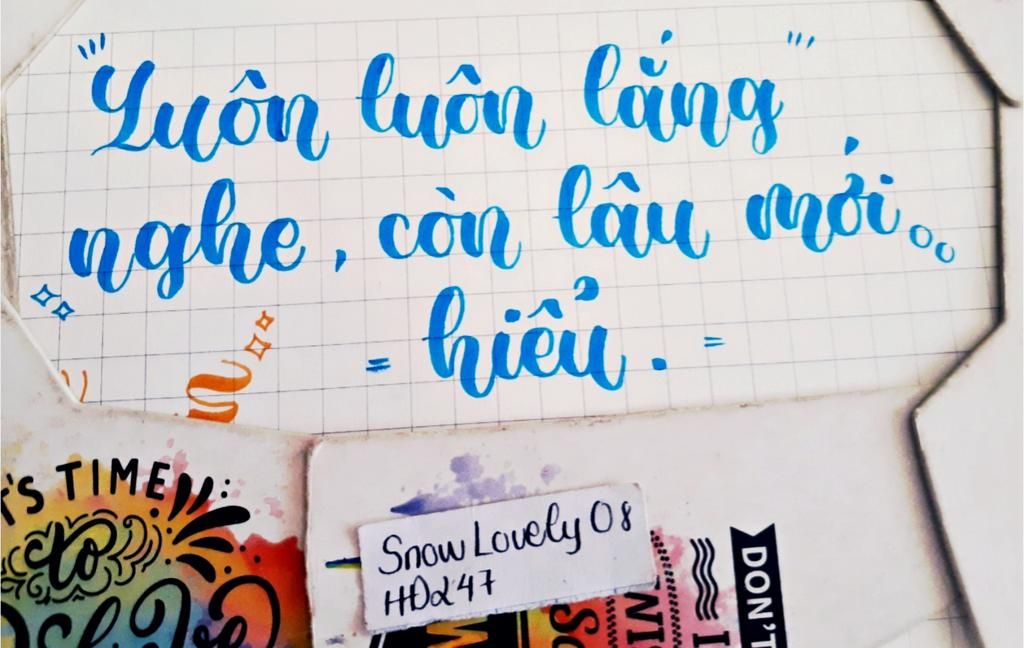 "Luôn luôn lắng"
nghe, còn lâu mới
= hiểu. =
IT'S TIME
to
Snow Lovely 08
HDα47
DON'T